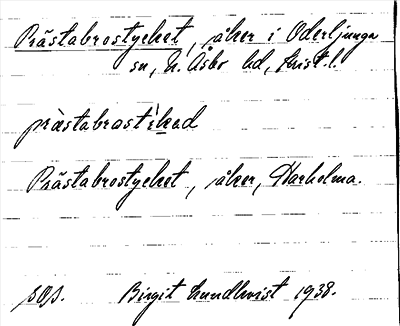 Prästabrostycket, åker i Oderljunga
sn, N. Åsbo hd, Krist. l.
Prästabrostycket, åker, Karholma.
sOp. Birgit Lundkvist 1938.